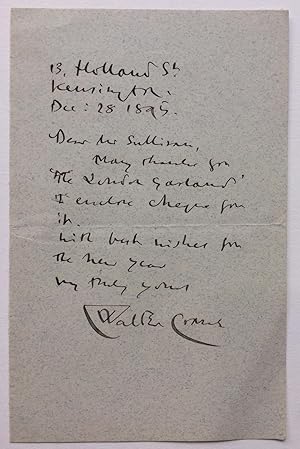 13, Holland St.
Kensington.
Dec: 28 1895.
Dear Mr Sullivan,
Many thanks for
'The London Garland'
I enclose cheque for
it.
With best wishes for
the New Year
Very truly yours
Walter Crane